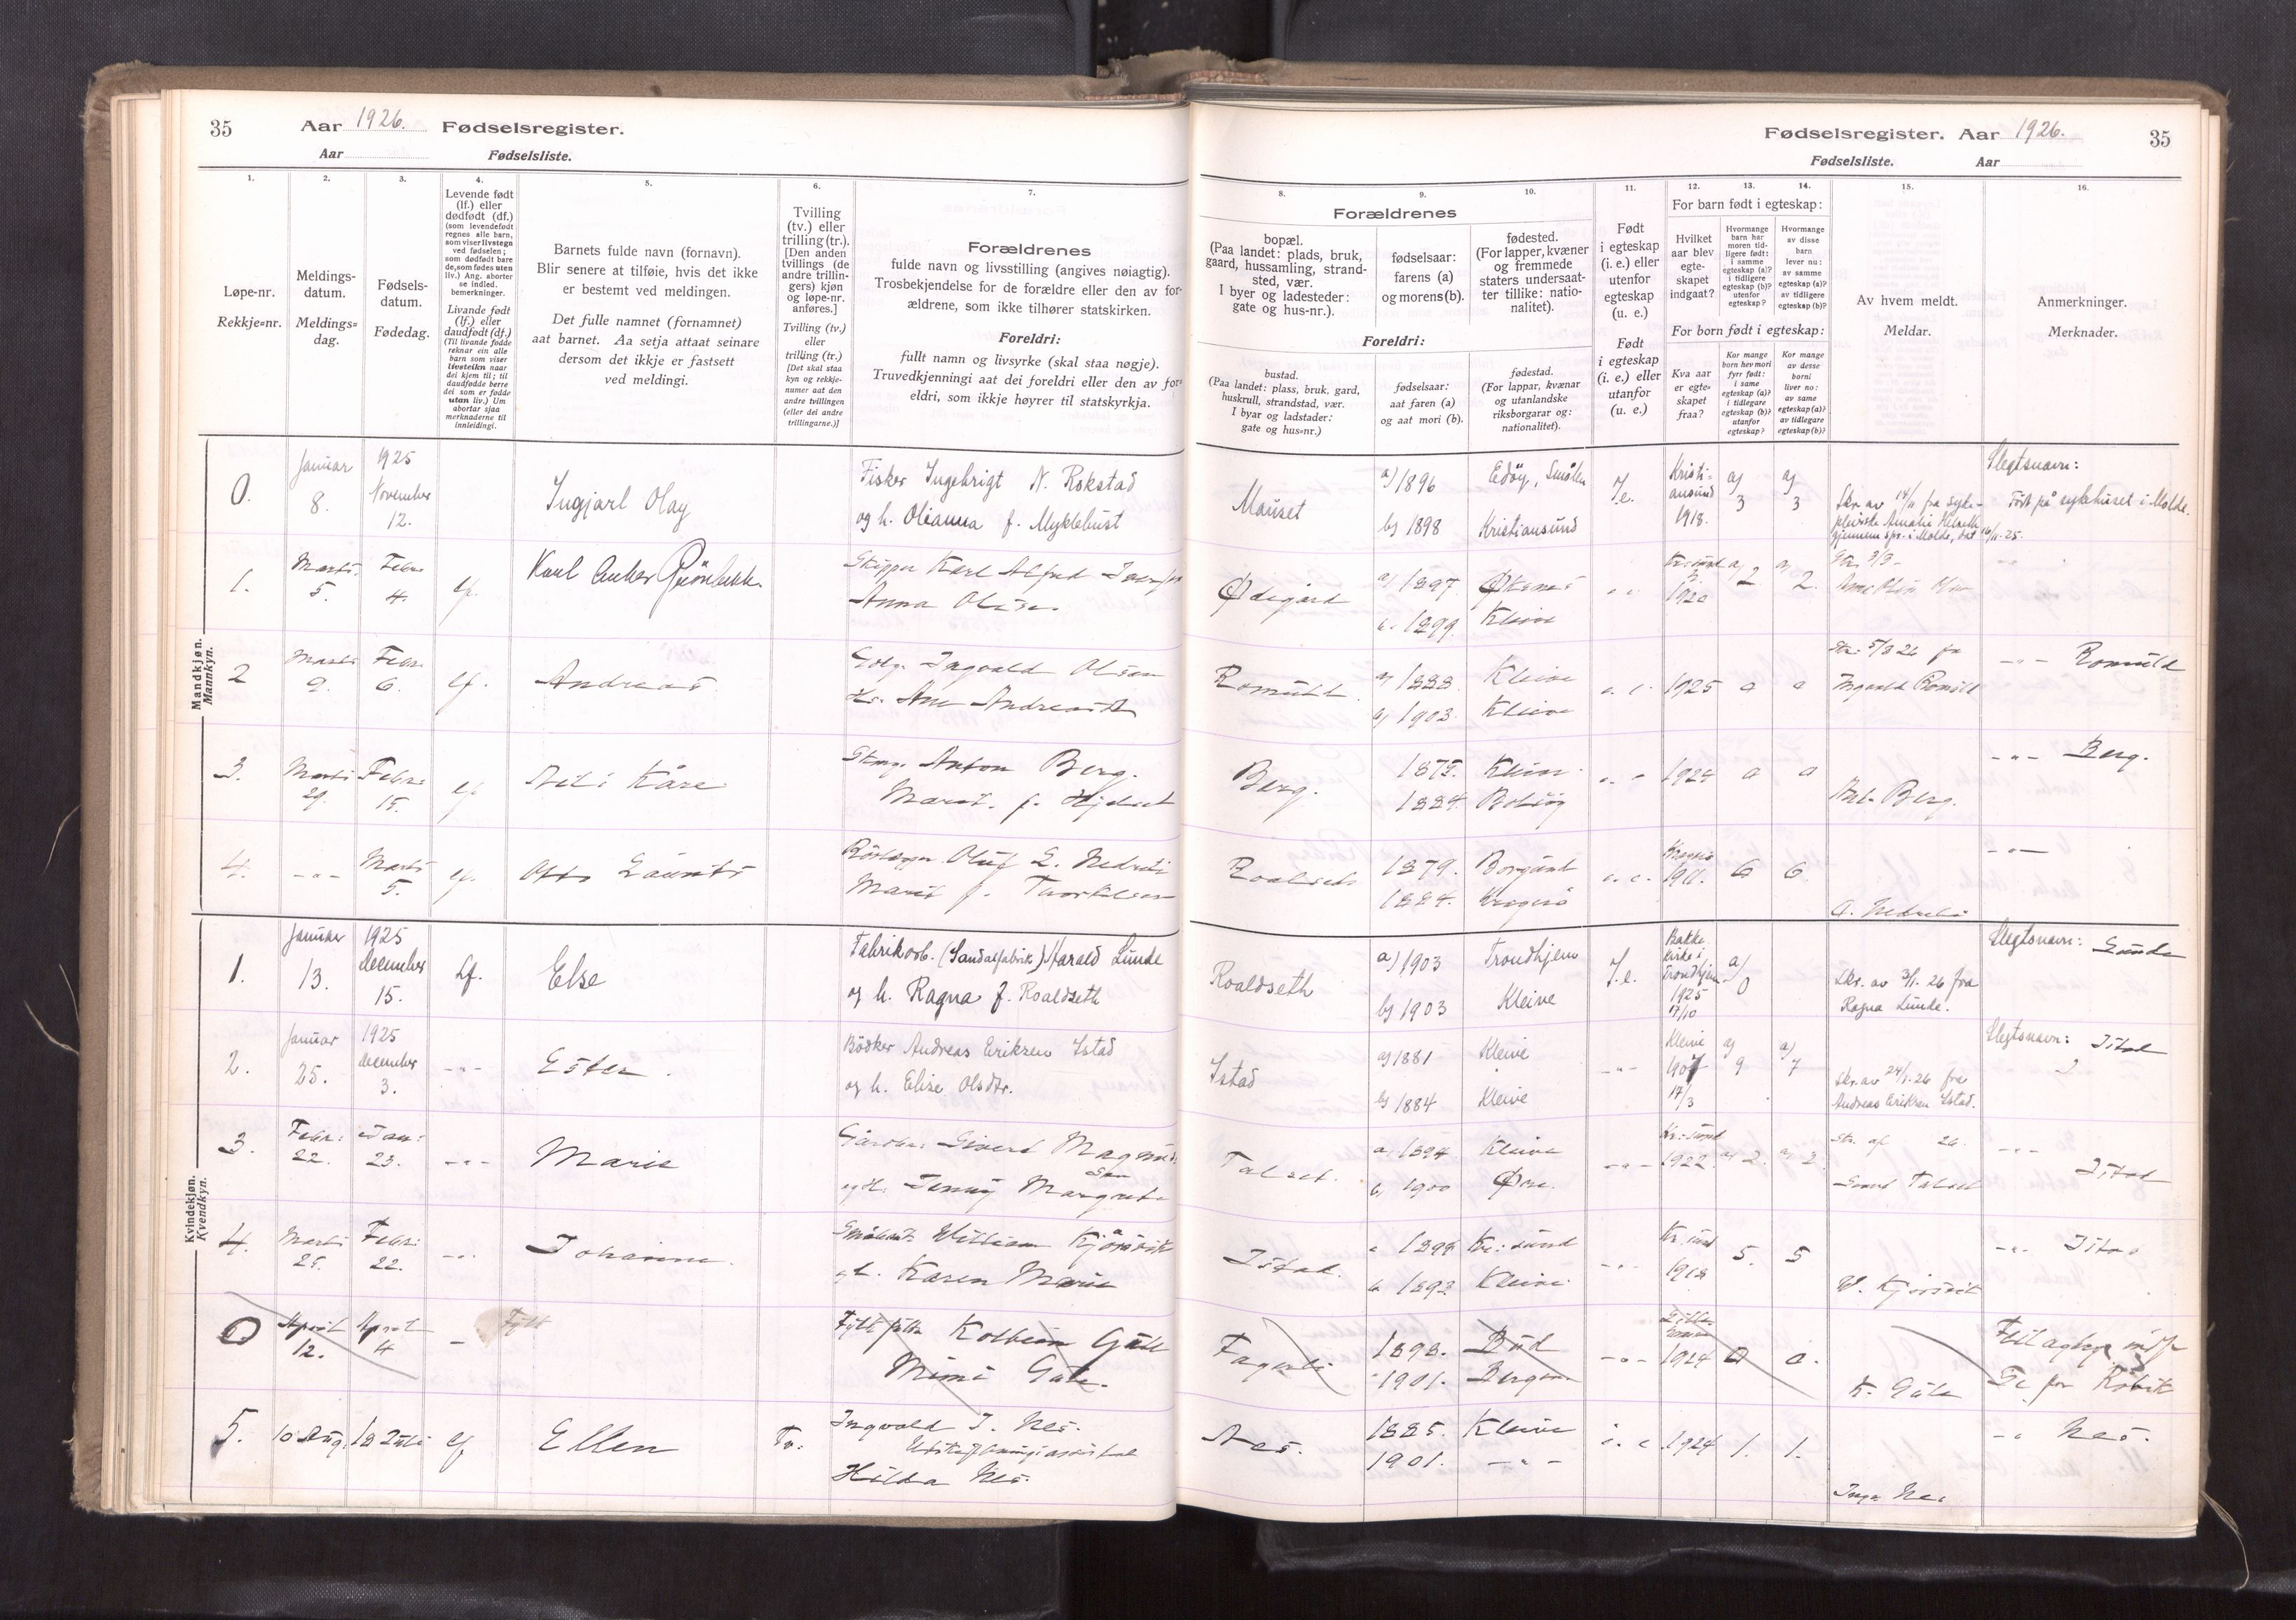 35
Aar 1926. Fødselsregister.
Aar Fødselsliste.
Fødselsregister. Aar 1926.
35
Fødselsliste. Aar
1.
Løpe-nr.
Rekkje=nr.
2.
Meldings-
datum.
Meldings=
dag.
3.
Fødsels-
datum.
Fødedag.
4.
Levende født
(lf.) eller
dødfødt (df.)
(som levendefødt
regnes alle barn,
som viser livstegn
ved fødselen;
som dødfødt bare
de, som fødes uten
liv.) Ang. aborter
se indled.
bemerkninger.
Livande født
(lf.) eller
daudfødt (df.)
(Til livande fødde
reknar ein alle
barn som viser
livsteikn naar
dei kjem til; til
daudfødde berre
dei som er fødde
utan liv.) Um
abortar sjaa
merknaderne til
innleidingi.
5.
Barnets fulde navn (fornavn).
Blir senere at tilføie, hvis det ikke
er bestemt ved meldingen.
Det fulle namnet (fornamnet)
aat barnet. Aa setja attaat seinare
dersom det ikkje er fastsett
ved meldingi.
6.
Tvilling
(tv.) eller
trilling (tr.).
[Den anden
tvillings (de
andre trillin-
gers) kjøn
og løpe-nr.
anføres.]
Tvilling (tv.)
eller
trilling (tr.)
[Det skal staa
kyn og rekkje-
numer aat den
andre tvillingen
(eller dei andre
trillingarne.)]
7.
Forældrenes
fulde navn og livsstilling (angives nøiagtig).
Trosbekjendelse for de forældre eller den av for-
ældrene, som ikke tilhører statskirken.
Foreldri:
fullt namn og livsyrke (skal staa nøgje).
Truvedkjenningi aat dei foreldri eller den av for-
eldri, som ikkje høyrer til statskyrkja.
8.
Forældrenes
bopæl.
(Paa landet: plads, bruk,
gaard, hussamling, strand-
sted, vær.
I byer og ladesteder:
gate og hus-nr.).
Foreldri:
bustad.
(Paa landet: plass, bruk, gard,
huskrull, strandstad, vær.
I byar og ladstader:
gate og hus=nr.)
9.
fødselsaar:
farens (a)
og morens (b).
fødselsaar:
aat faren (a)
og aat mori (b).
10.
fødested.
(For lapper, kvæner
og fremmede
staters undersaat-
ter tillike: natio-
nalitet).
fødestad.
(For lappar, kvænar
og utanlandske
riksborgarar og:
nationalitet).
11.
Født
i egteskap
(i. e.) eller
utenfor
egteskap
(u. e.)
Født
i egteskap
(i. e.) eller
utanfor
(u. e.)
12.
13.
14.
For barn født i egteskap:
Hvilket
aar blev
egte-
skapet
indgaat?
Hvormange
barn har
moren tid-
ligere født:
i samme
egteskap (a)?
i tidligere
egteskap (b)?
utenfor
egteskap?
Hvormange
av disse
barn
lever nu:
av samme
egteskap (a)?
av tidligere
egteskap (b)?
For born født i egteskap:
Kva aar
er egte-
skapet
fraa?
Kor mange
born hev mori
fyrr født:
i same
egteskap (a)?
i tidlegare
egteskap (b)?
utanfor
egteskap?
Kor mange
av desse
borni
liver no:
av same
egteskap (a)?
av tidlegare
egteskap (b)?
15.
Av hvem meldt.
Meldar.
16.
Anmerkninger.
Merknader.
Mandkjøn.
Mannkyn.
0.
Januar
8.
1925
November
12.
Ingjarl Olay
Fisker Ingebrigt N. Rokstad
og h. Olianna f. Myklebust
Mauset
a) 1896
b) 1898
Edöy, Smölen
Kristiansund
I.e.
Kristi-
ansund
1918.
a)
3
a)
3
Skr. av 14/11 fra syke-
pleierske Amalie
gjennem spr. i Molde, dat 16/11-25.
Slegtsnavn:
Født på sykehuset i Molde.
1.
Marts
5.
Febr.
4.
lf.
Karl Anker
Skipper Karl Alfred
Anna Olsen
Ødegård
a) 1897.
b. 1899.
Kleive
1920
a) 2
a) 2.
2
Marts
9.
Febr.
6.
lf.
Andreas
Ingvald Olsen
Ane
Romuld
a) 1888.
b) 1903.
Kleive
Kleive
1925
0
0
Skr: 5/3 26 fra
Ingvald Romuld
-"- Romuld
3.
Marts
29.
Febr.
15.
lf
Kåre
Anton Berg.
Marit. f. Hjelset
Berg.
1875.
1884.
Bolsöy
1924
0
0
Ant. Berg.
-"- Berg.
4.
-"-
Marts
5.
lf.
Otto Laurits
Oluf L.
Marit f. Torkilsen
Roaldseth
1879.
1884.
Borgund
Kragerö
1911.
6
6
-"-
Kvindekjøn.
Kvendkyn.
1.
Januar
13.
1925
December
15.
Lf.
Else
Fabrikarb. (Sandalfabrik) Harald Lunde
og h. Ragna f. Roaldseth
Roaldseth
a) 1903
b) 1903
Trondhjem
Kleive
I.e.
Bakke
kirke i
Trondhjem
1925
17/10
a)
0
Skr. av 3/1. 26 fra
Ragna Lunde.
Slegtsnavn: Lunde
2.
Januar
25.
1925
December
3.
-"-
Ester.
Bödker Andreas Eriksen Istad
og h. Elise Olsdtr.
Istad
a) 1881
b) 1884
Kleive
Kleive
-"-
Kleive
1907
17/3
a)
9
a)
7
Skr. av 24/1-26 fra
Andreas Eriksen Istad.
Slegtsnavn: Istad
3.
Febr:
22.
Jan:
23.
-"-
Marie
Sivert Magnus
sen
og h. Jenny Margrete
Talset.
a) 1894
b) 1900
Kleive
Øre.
-"-
Kr:sund
1922.
a) 2.
a) 2.
Skr. af 26.
Sivert Talset
-"-
Istad
4.
Marts
25.
Febr:
22.
-"-
Johanne.
William Kjörsvik
og h. Karen Marie
Istad.
b. 1893
Kr:sund
Kleive.
-"-
Kr.sund
1918
5.
5
W. Kjörsvik
-"- Istad
0
April
12.
April
4
Kolbein Gule
Mimi Gule.
Fagerli
1898.
1901.
Bud
Bergen
-"-
1924
0
0.
K. Gule
5.
10 Aug.
18 Juli
lf
Ellen
Tv:
Ingvald J. Nes.
Hilda Nes.
Nes.
1885.
1901.
Kleive
-"-
i. e.
1924
1.
1.
Nes
-"- Nes.